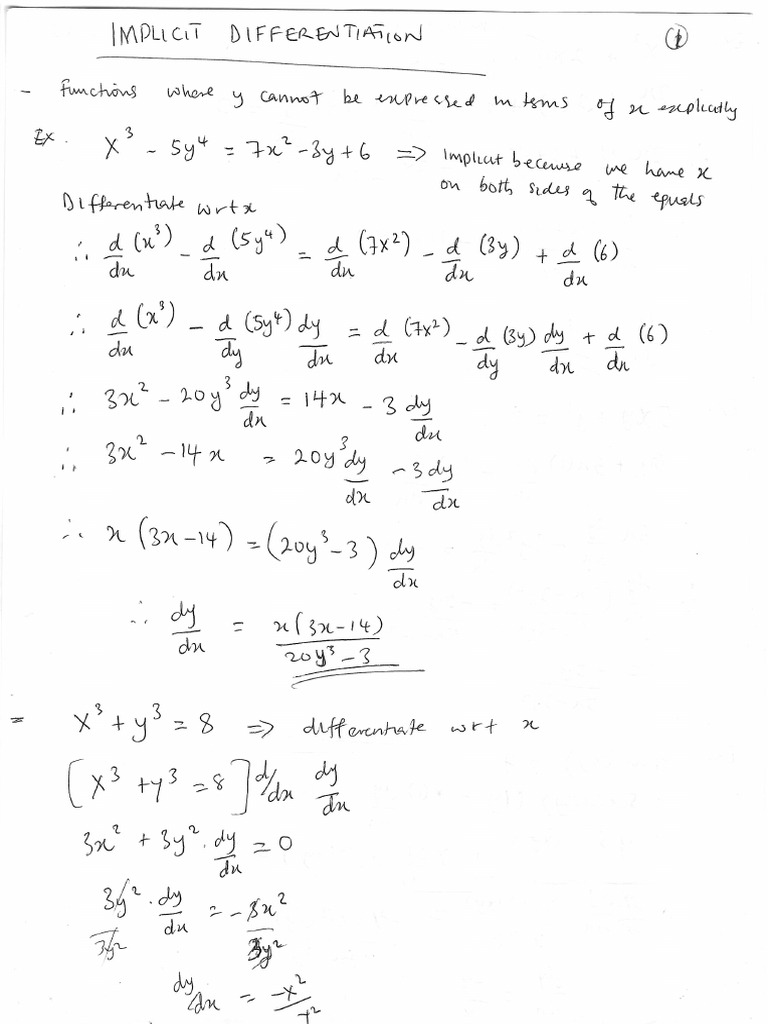 IMPLICIT DIFFERENTIATION ①
- Functions where y cannot be expressed in terms of x explicitly
Ex. x³ - 5y⁴ = 7x² - 3y + 6 ⇒ Implicit because we have x
on both sides of the equals
Differentiate wrt x
∴ d/dx (x³) - d/dx (5y⁴) = d/dx (7x²) - d/dx (3y) + d/dx (6)
∴ d/dx (x³) - d/dy (5y⁴) dy/dx = d/dx (7x²) - d/dy (3y) dy/dx + d/dx (6)
∴ 3x² - 20y³ dy/dx = 14x - 3 dy/dx
∴ 3x² - 14x = 20y³ dy/dx - 3 dy/dx
∴ x (3x - 14) = (20y³ - 3) dy/dx
∴ dy/dx = x(3x - 14) / 20y³ - 3
= x³ + y³ = 8 ⇒ differentiate wrt x
[x³ + y³ = 8] d/dx dy/dx
3x² + 3y² . dy/dx = 0
3y² . dy/dx / 3y² = -3x² / 3y²
dy/dx = -x² / y²